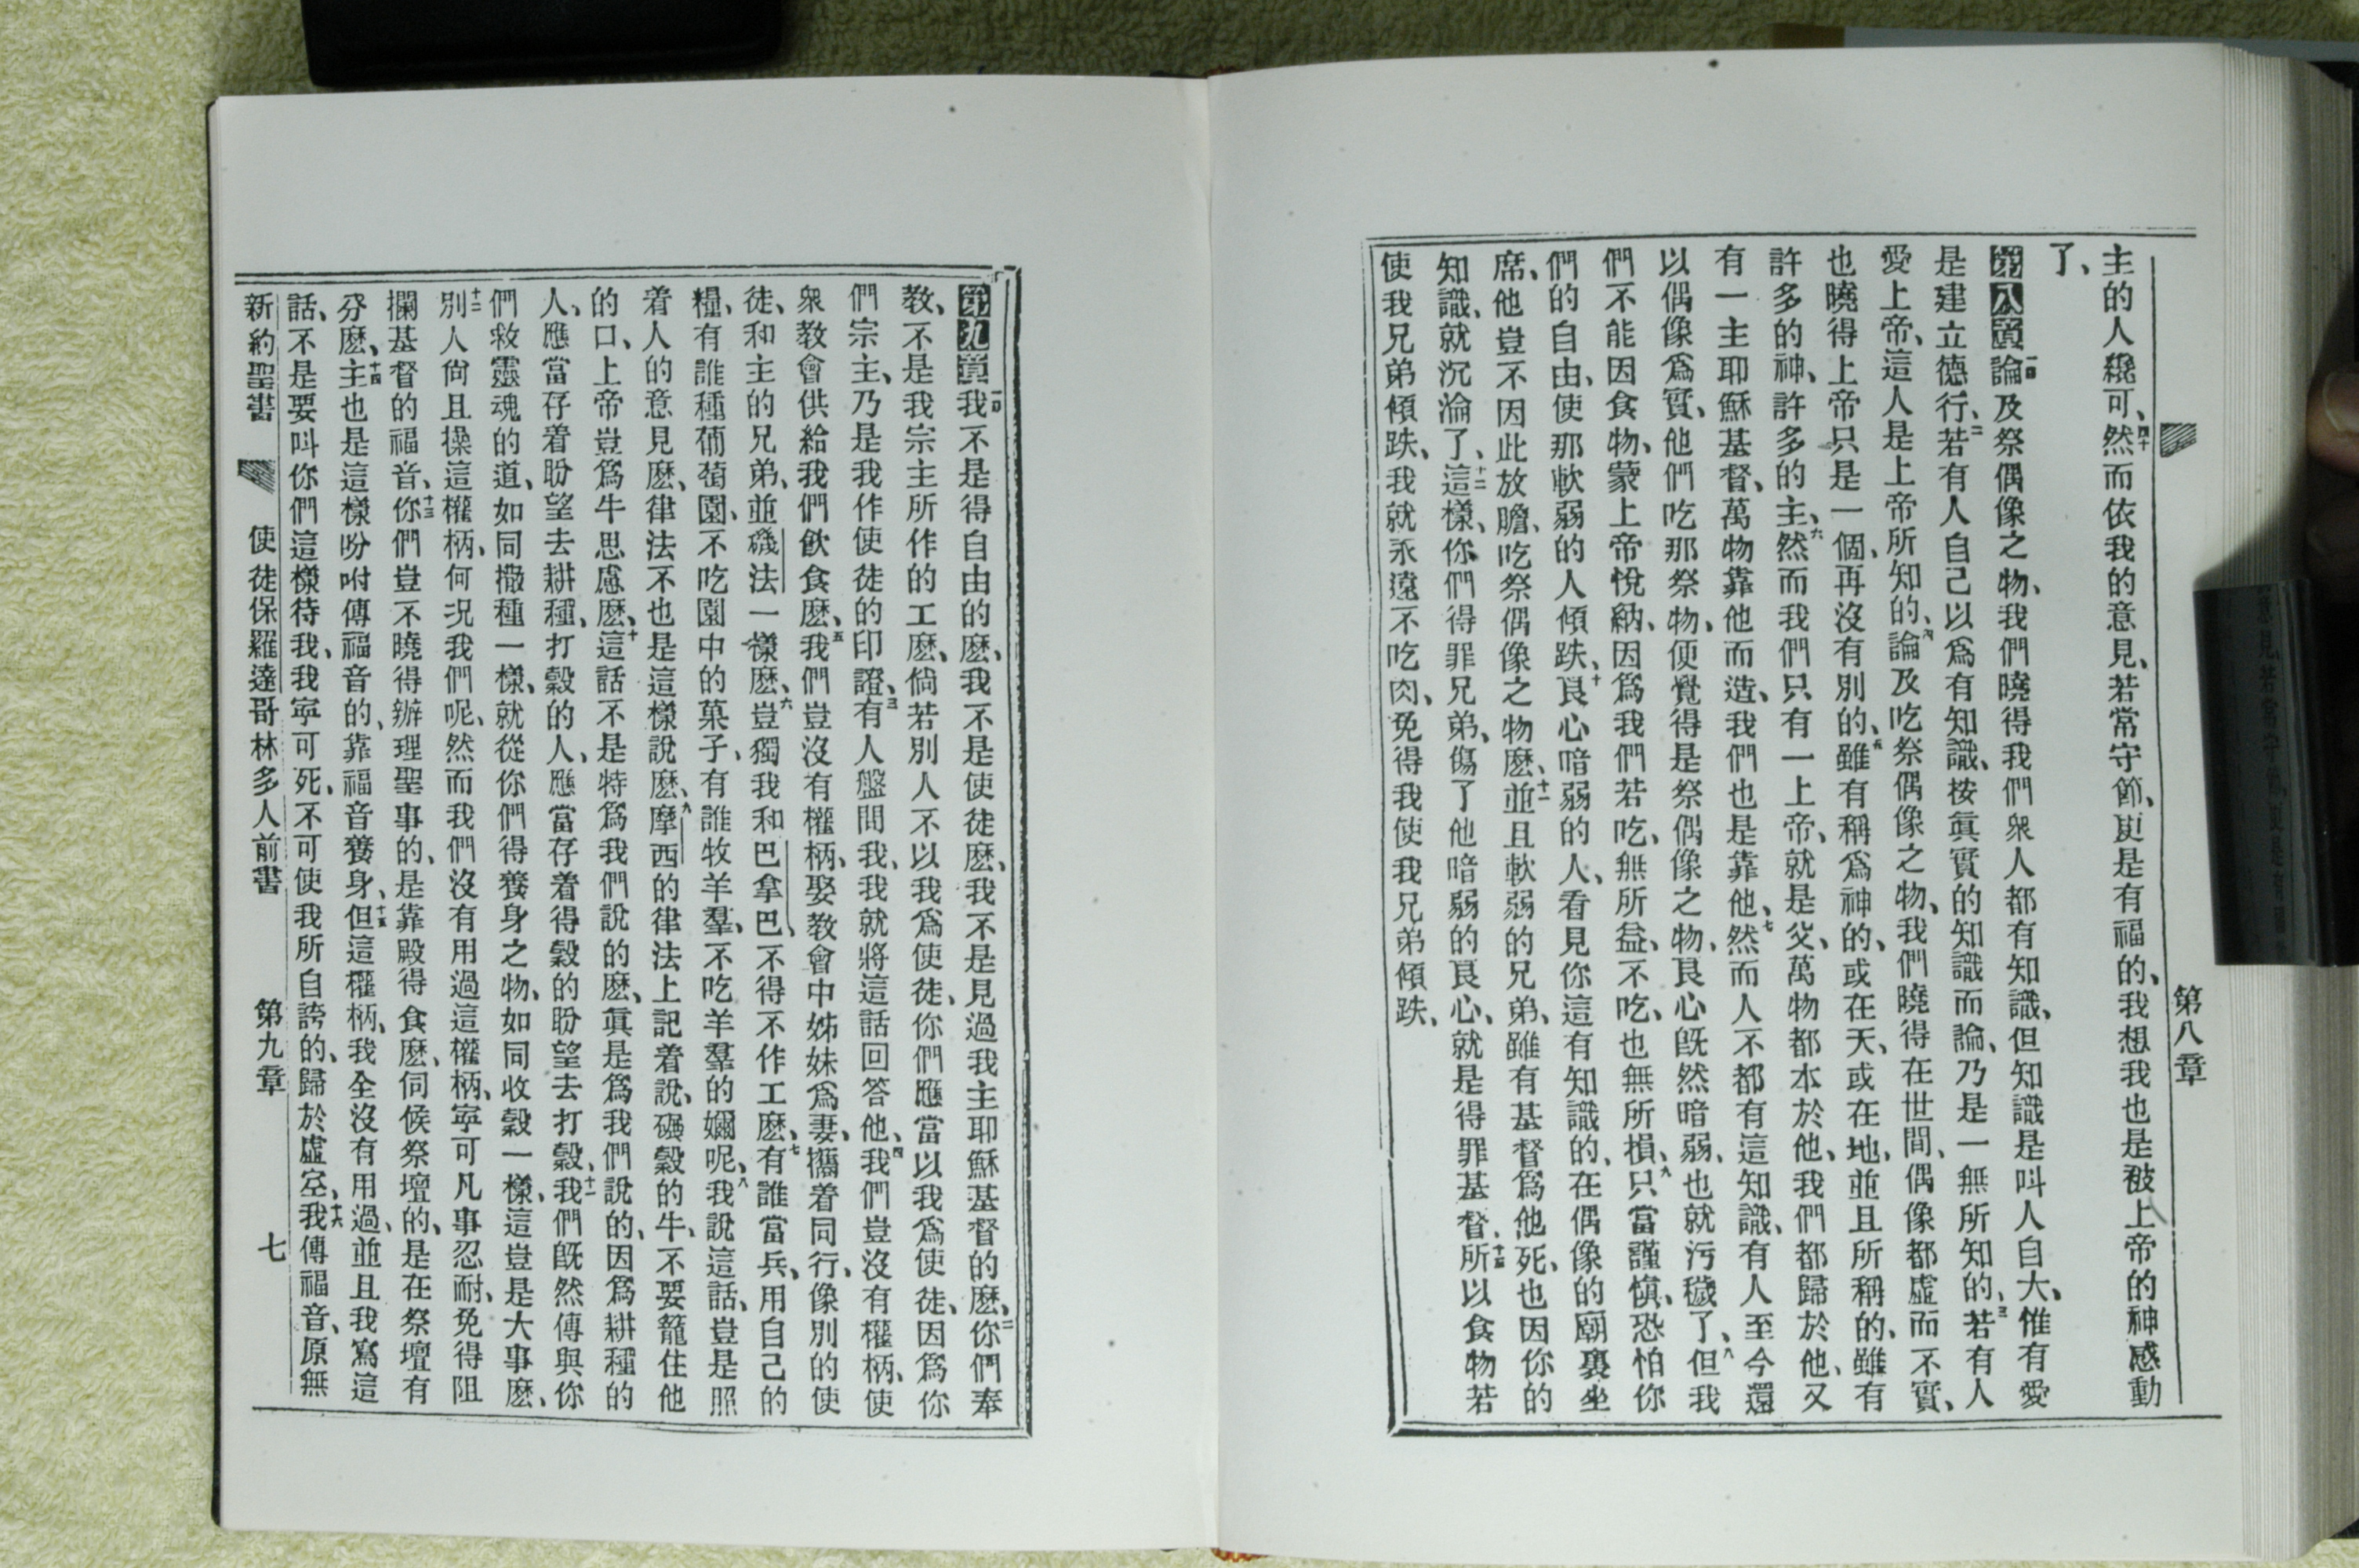 第八章
主的人纔可、四十然而依我的意見、若常守節、更是有福的、我想我也是被上帝的神感動
了、
第八章一節論及祭偶像之物、我們曉得我們衆人都有知識、但知識是叫人自大、惟有愛
是建立德行、二若有人自己以爲有知識、按眞實的知識而論、乃是一無所知的、三若有人
愛上帝、這人是上帝所知的、四論及吃祭偶像之物、我們曉得在世間、偶像都虛而不實、
也曉得上帝只是一個、再沒有別的、五雖有稱爲神的、或在天、或在地、並且所稱的、雖有
許多的神、許多的主、六然而我們只有一上帝、就是父、萬物都本於他、我們都歸於他、又
有一主耶穌基督、萬物靠他而造、我們也是靠他、七然而人不都有這知識、有人至今還
以偶像爲實、他們吃那祭物、便覺得是祭偶像之物、良心旣然暗弱、也就污穢了、八但我
們不能因食物、蒙上帝悅納、因爲我們若吃、無所益、不吃、也無所損、九只當謹愼、恐怕你
們的自由、使那軟弱的人傾跌、十良心暗弱的人、看見你這有知識的、在偶像的廟裏坐
席、他豈不因此放膽、吃祭偶像之物麽、十一並且軟弱的兄弟、雖有基督爲他死、也因你的
知識、就沉淪了、十二這樣、你們得罪兄弟、傷了他暗弱的良心、就是得罪基督、十三所以食物若
使我兄弟傾跌、我就永遠不吃肉、免得我使我兄弟傾跌、
第九章一節我不是得自由的麽、我不是使徒麽、我不是見過我主耶穌基督的麽、二你們奉
教、不是我宗主所作的工麽、倘若別人不以我爲使徒、你們應當以我爲使徒、因爲你
們宗主、乃是我作使徒的印證、三有人盤問我、我就將這話回答他、四我們豈沒有權柄、使
衆教會供給我們飲食麽、五我們豈沒有權柄、娶教會中姊妹爲妻、攜着同行、像別的使
徒、和主的兄弟、並磯法一樣麽、六豈獨我和巴拿巴、不得不作工麽、七有誰當兵、用自己的
糧、有誰種葡萄園、不吃園中的菓子、有誰牧羊羣、不吃羊羣的嬭呢、八我說這話、豈是照
着人的意見麽、律法不也是這樣說麽、九摩西的律法上記着說、碾穀的牛、不要籠住他
的口、上帝豈爲牛思慮麽、十這話不是特爲我們說的麽、眞是爲我們說的、因爲耕種的
人、應當存着盼望去耕種、打穀的人、應當存着得穀的盼望去打穀、十一我們旣然傳與你
們救靈魂的道、如同撒種一樣、就從你們得養身之物、如同收穀一樣、這豈是大事麽、
十二別人尙且操這權柄、何况我們呢、然而我們沒有用過這權柄、寧可凡事忍耐、免得阻
攔基督的福音、十三你們豈不曉得辦理聖事的、是靠殿得食麽、伺候祭壇的、是在祭壇有
分麽、十四主也是這樣吩咐傳福音的、靠福音養身、十五但這權柄、我全沒有用過、並且我寫這
話、不是要叫你們這樣待我、我寧可死、不可使我所自誇的、歸於虛空、十六我傳福音、原無
新約聖書　使徒保羅達哥林多人前書　第九章　七